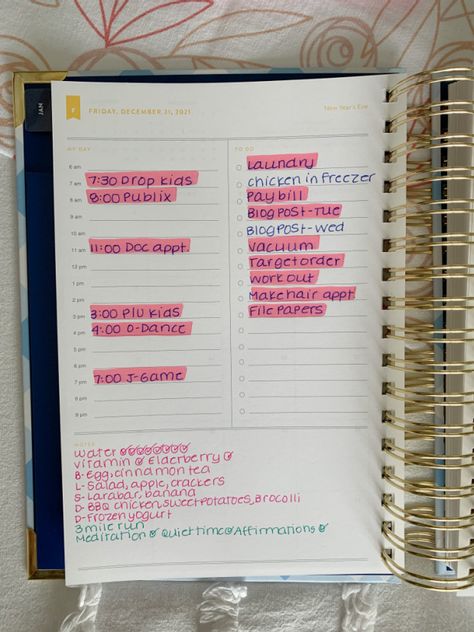 JAN
F
FRIDAY, DECEMBER 31, 2021
New Year's Eve
MY DAY
6 am
7 am
7:30 Drop kids
8 am
8:00 Publix
9 am
10 am
11 am
11:00 Doc appt.
12 pm
1 pm
2 pm
3 pm
3:00 P/U kids
4 pm
4:00 O-Dance
5 pm
6 pm
7 pm
7:00 J-Game
8 pm
9 pm
TO DO
Laundry
chicken in freezer
Pay bill
Blog Post-Tue
Blog Post-Wed
Vacuum
Target order
Work out
Make hair appt
File Papers
NOTES
Water
Vitamin Elderberry
B-Egg, cinnamon tea
L-Salad, apple, crackers
S-Larabar, banana
D-BBQ chicken, sweet potatoes, Brocolli
D-Frozen yogurt
3 mile run
Meditation Quiet time Affirmations